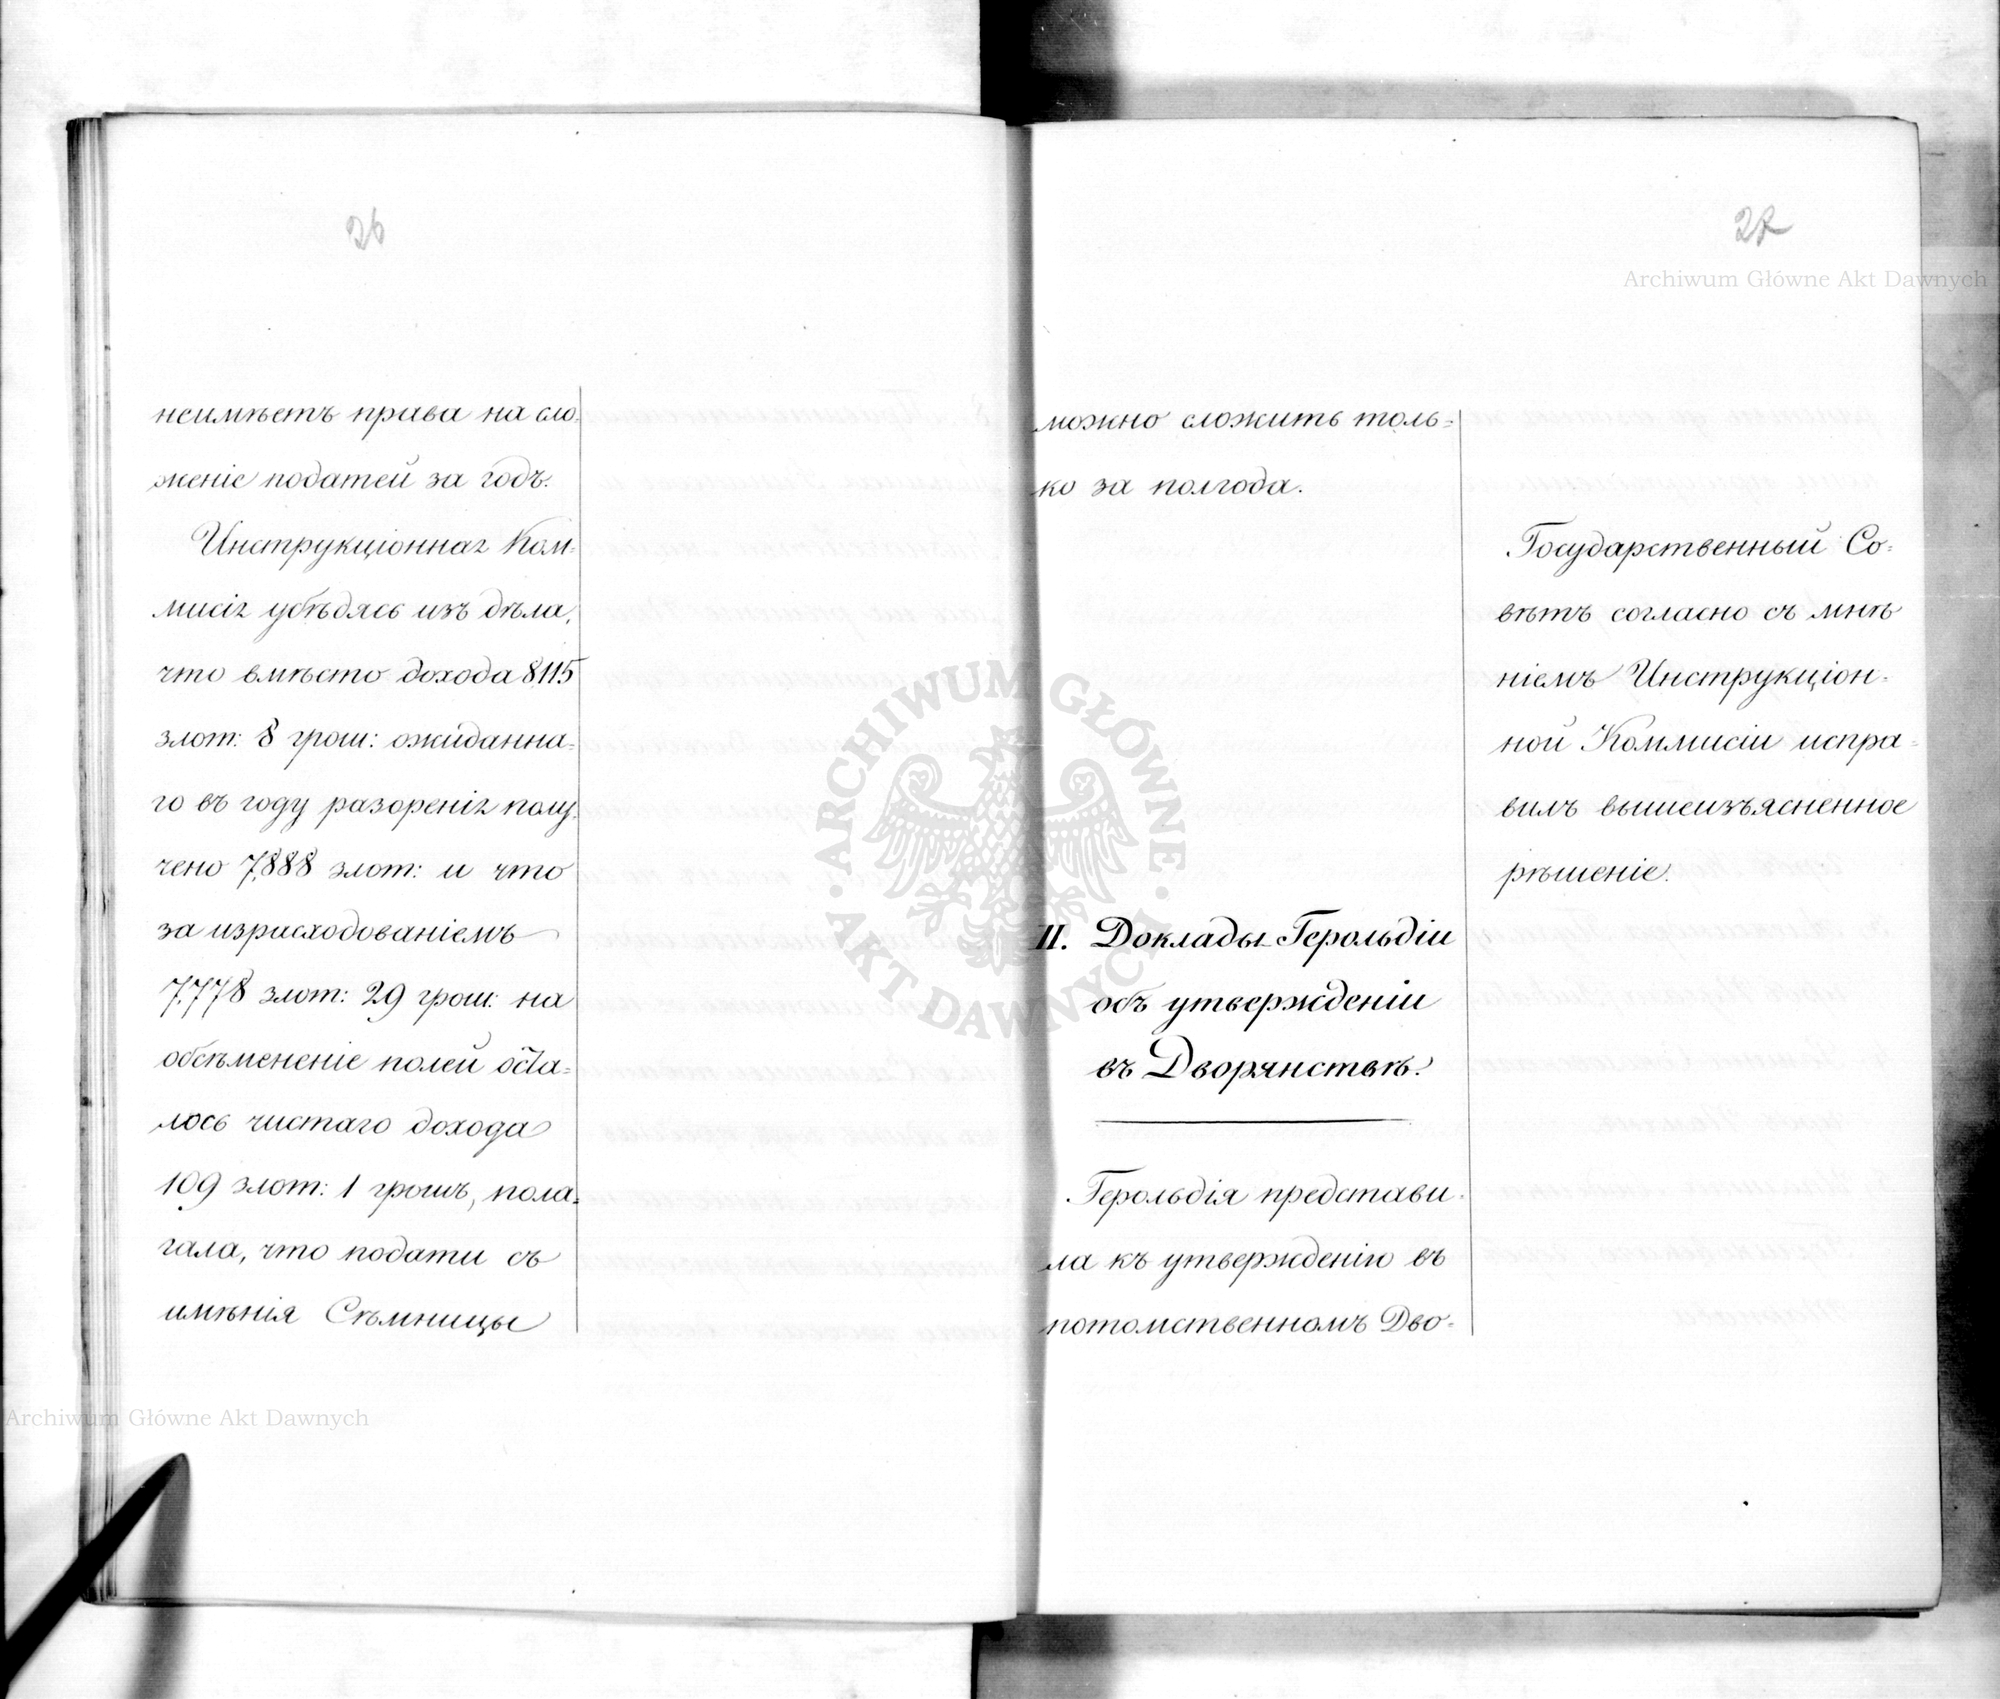 26
неимѣетъ права на сло-
женіе податей за годъ.
Инструкціонная Ком-
мисія убѣдясь изъ дѣла,
что вмѣсто дохода 8,115
злот: 8 грош: ожиданна-
го въ году разоренія полу-
чено 7,888 злот: и что
за израсходованіемъ
7,778 злот: 29 грош: на
обсѣмененіе полей оста-
лось чистаго дохода
109 злот: 1 грошъ, пола-
гала, что подати съ
имѣнія Сѣмницы
27
можно сложить толь-
ко за полгода.
Государственный Со-
вѣтъ согласно съ мнѣ
ніемъ Инструкціон-
ной Коммисіи испра-
вилъ вышеизъясненное
рѣшеніе.
II. Доклады Герольдіи
объ утвержденіи
въ Дворянствѣ.
Герольдія представи-
ла къ утвержденію въ
потомственномъ Дво-
Archiwum Główne Akt Dawnych
ARCHIWUM GŁÓWNE AKT DAWNYCH
Archiwum Główne Akt Dawnych